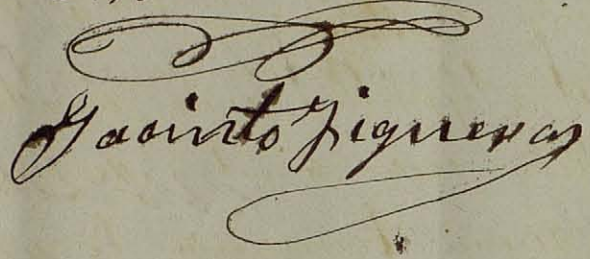 Jacinto Figueras